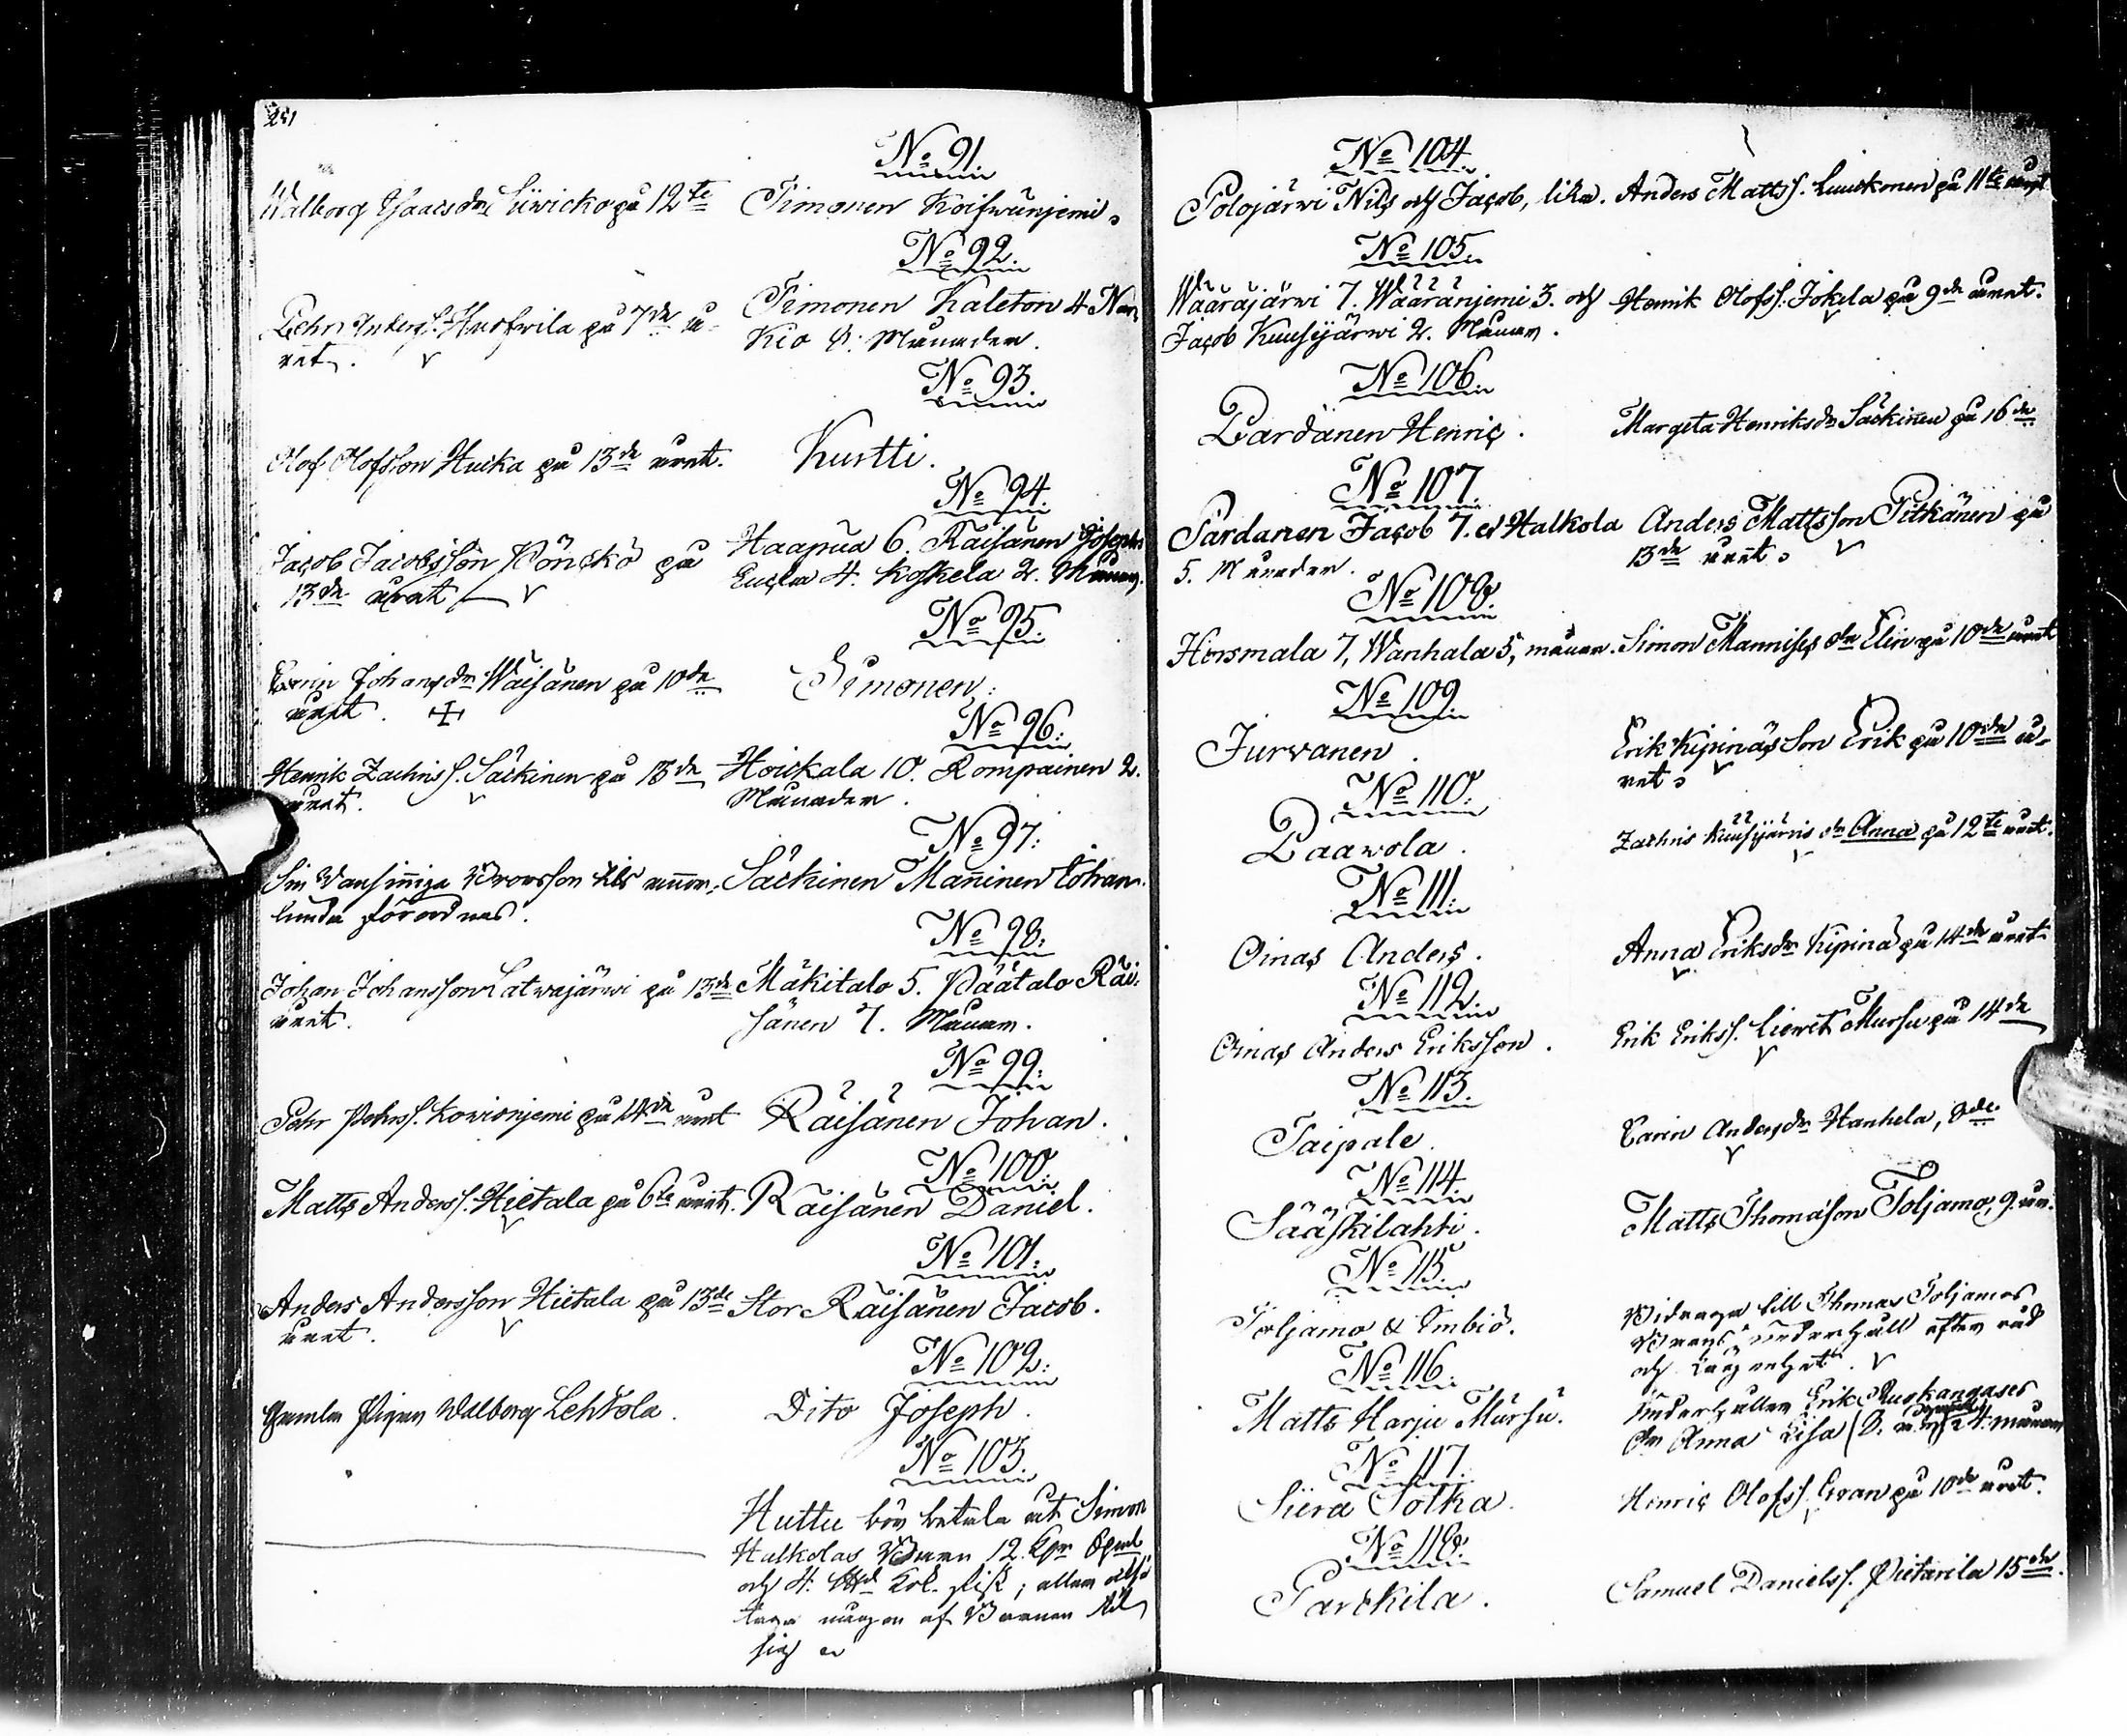 251
No 91.
Walborg Isaacsdr Siiricko på 12te
Timonen Koifwunjemi.
No 92.
Pehr Anderss. Husfwila på 7de å-
ret.
Timonen Kaleton 4 Nar
Kio 8: Månader.
No 93.
Olof Olofsson Hucka på 13de året.
Kurtti.
No 94.
Jacob Jacobsson Pönckö på
13de året
Haapua 6. Räisänen Joseph
4. Koskela 2. Månad.
No 95.
Carin Johansdr Wäisänen på 10de
året.
Simonen.
No 96.
Henrik Zachriss. Säckinen på 13de
året.
Hoickala 10. Rompainen 2.
Månader.
No 97.
Sin Vansinniga Brorsson tils annor-
lunda förordnas.
Säckinen Mañinen Johan.
No 98.
Johan Johansson Latwajärwi på 13de
året.
Mäkitalo 5. Päätalo Räi-
sänen 7. Månan.
No 99.
Pehr Pehrss. Korionjemi på 14de året
Räisänen Johan.
No 100.
Matts Anderss. Hietala på 6te året.
Räisänen Daniel.
No 101.
Anders Andersson Hietala på 13de
året.
Stor Räisänen Jacob.
No 102.
Gamla Pigan Walborg Lehtola.
Dito Joseph.
No 103.
Huttu bör betala åt Simon
Halkolas Barn 12. Kpr
och 4. fisk; eller ock
taga någon af Barnen til
sig
No 104.
Polojärwi Nils och Jacob, lika.
Anders Mattss. Luuckonen på 11te året
No 105.
Wääräjärwi 7. Wääränjemi 3. och
Jacob Kuusijärwi 2. Månan.
Henrik Olofss. Jokela på 9de året.
No 106.
Pardänen Henric.
Margeta Henriksdr Säckinen på 16de
No 107.
Pardanen Jacob 7. et Halkola
5. Månader.
Anders Mattsson Pitkänen på
13de året.
No 108.
Hirsmala 7, Wanhala 5, månan.
Simon Mannises dr Elin på 10de året
No 109.
Jurvanen.
Erik Kipinäs Son Erik på 10de å-
ret.
No 110.
Paawola.
Zachris Kuusijärvis dr Anna på 12te året.
No 111.
Oinas Anders.
Anna Eriksdr Kipinä på 14de året.
No 112.
Oinas Anders Eriksson.
Erik Erikss. Mursu på 14de
No 113.
Taipale.
Carin Andersdr Hanhela, 8de.
No 114.
Sääskilahti.
Matts Thomasson Toljamo, 9. år.
No 115.
Toljamo & Imbiö.
Bidraga till Thomas Toljamos
Barns underhåll efter råd
och lägenhet.
No 116.
Matts Harju Mursu.
Underhåller Erik Ruskangases
dr Anna Lisa 24. månan
No 117.
Siera Sotka.
Henric Olofss. Ervan på 10de året.
No 118.
Parckila.
Samuel Danielss. Pietarila 15de.